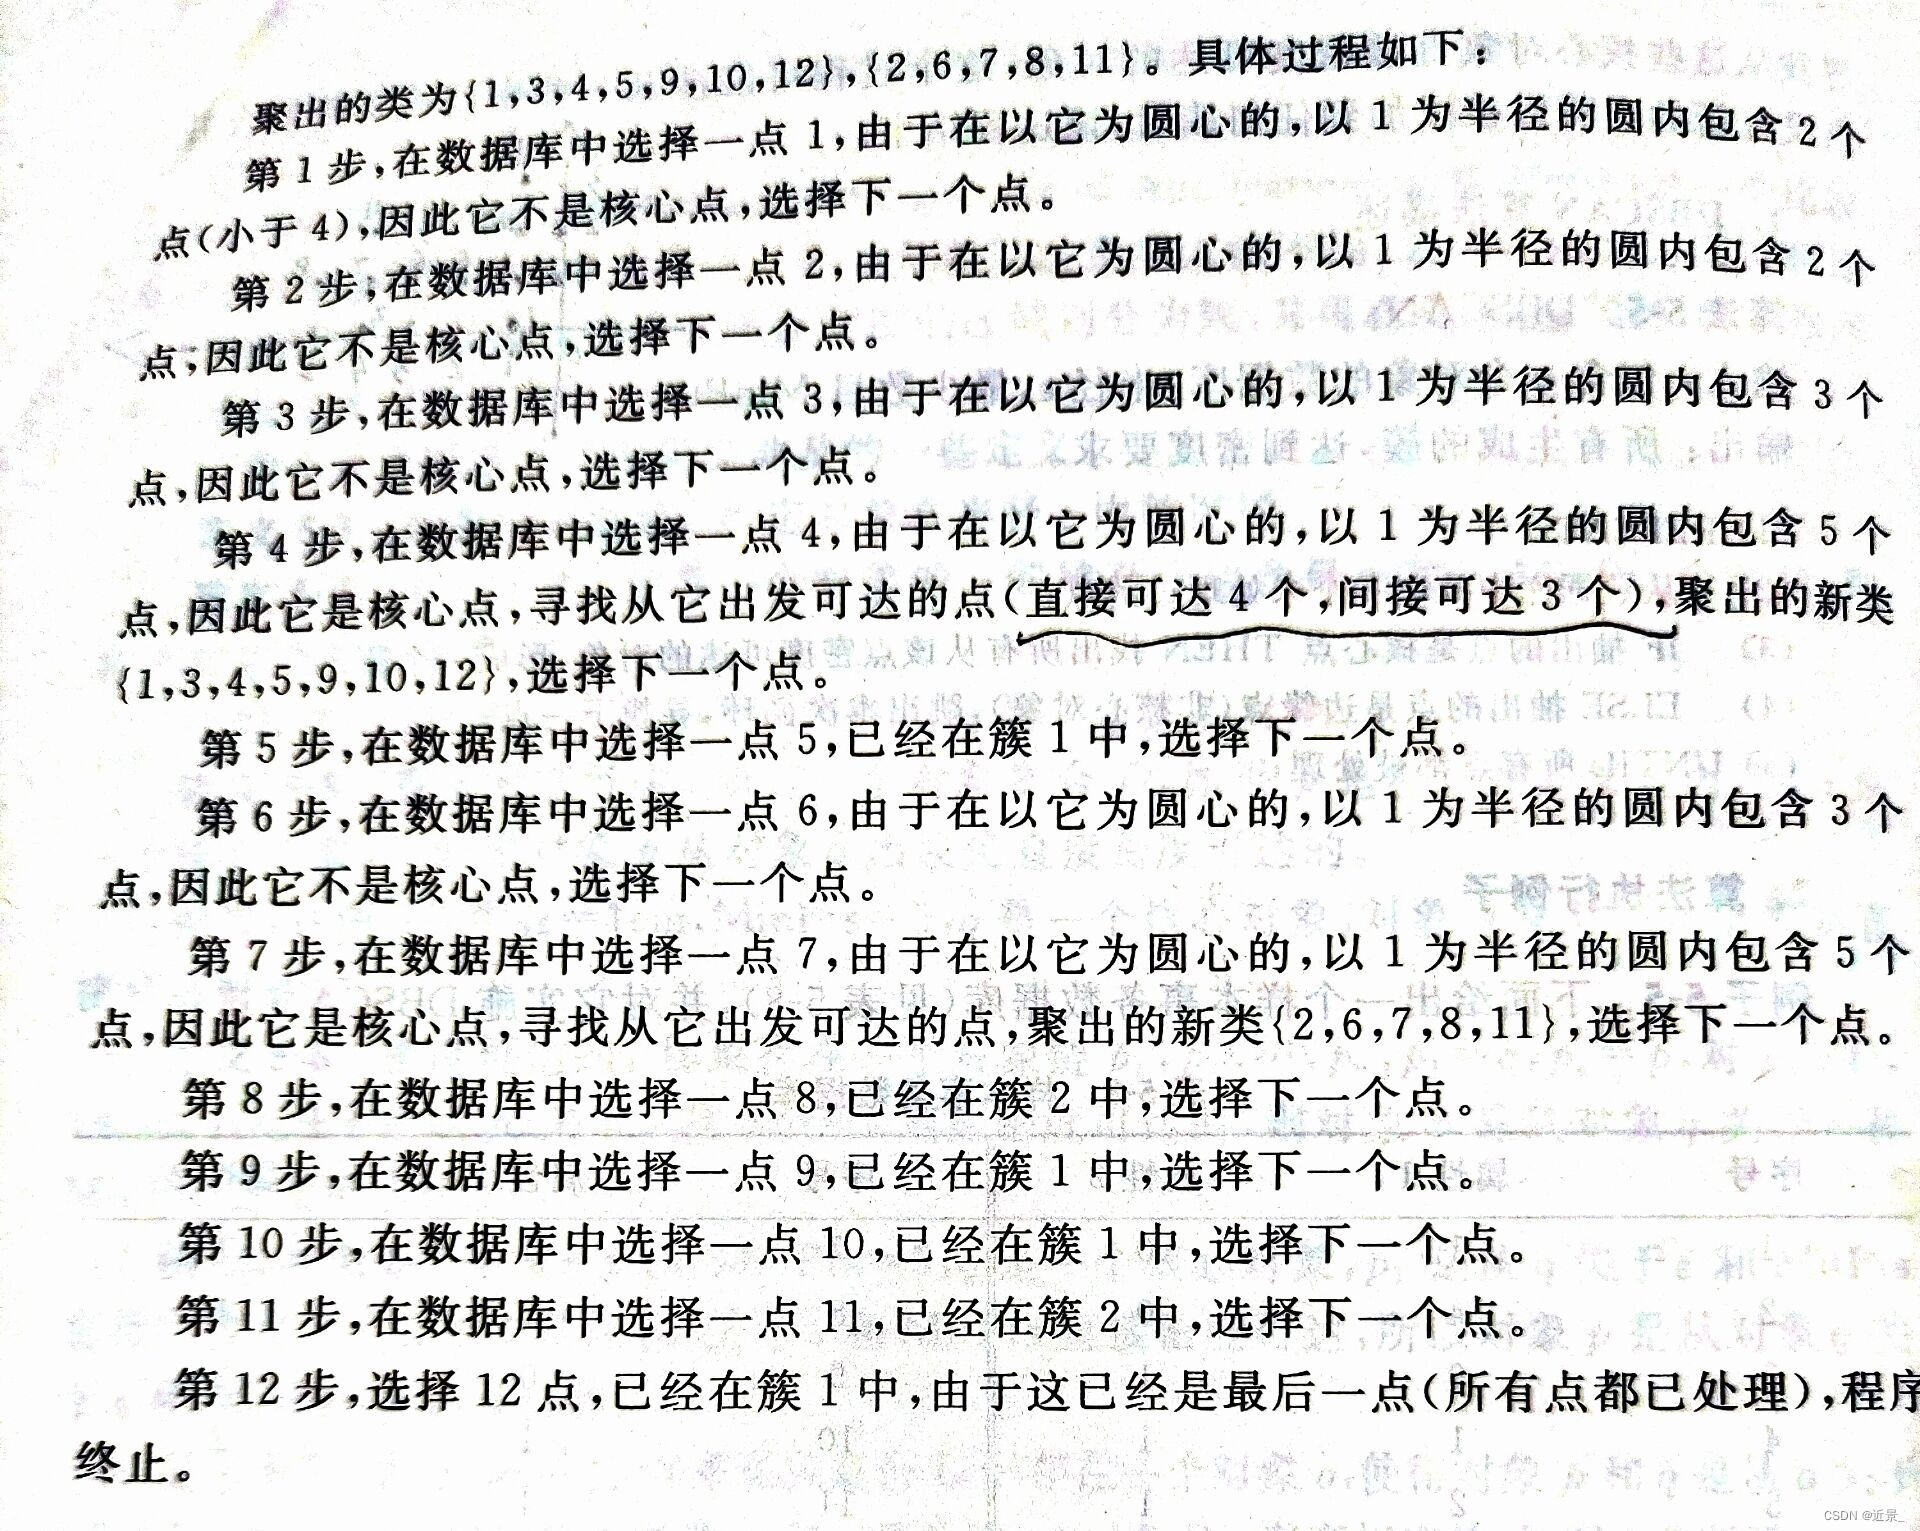 聚出的类为{1,3,4,5,9,10,12},{2,6,7,8,11}。具体过程如下:
第1步,在数据库中选择一点1,由于在以它为圆心的,以1为半径的圆内包含2个
点(小于4),因此它不是核心点,选择下一个点。
第2步,在数据库中选择一点2,由于在以它为圆心的,以1为半径的圆内包含2个
点,因此它不是核心点,选择下一个点。
第3步,在数据库中选择一点3,由于在以它为圆心的,以1为半径的圆内包含3个
点,因此它不是核心点,选择下一个点。
第4步,在数据库中选择一点4,由于在以它为圆心的,以1为半径的圆内包含5个
点,因此它是核心点,寻找从它出发可达的点(直接可达4个,间接可达3个),聚出的新类
{1,3,4,5,9,10,12},选择下一个点。
第5步,在数据库中选择一点5,已经在簇1中,选择下一个点。
第6步,在数据库中选择一点6,由于在以它为圆心的,以1为半径的圆内包含3个
点,因此它不是核心点,选择下一个点。
第7步,在数据库中选择一点7,由于在以它为圆心的,以1为半径的圆内包含5个
点,因此它是核心点,寻找从它出发可达的点,聚出的新类{2,6,7,8,11},选择下一个点。
第8步,在数据库中选择一点8,已经在簇2中,选择下一个点。
第9步,在数据库中选择一点9,已经在簇1中,选择下一个点。
第10步,在数据库中选择一点10,已经在簇1中,选择下一个点。
第11步,在数据库中选择一点11,已经在簇2中,选择下一个点。
第12步,选择12点,已经在簇1中,由于这已经是最后一点(所有点都已处理),程序
终止。
CSDN @近景_